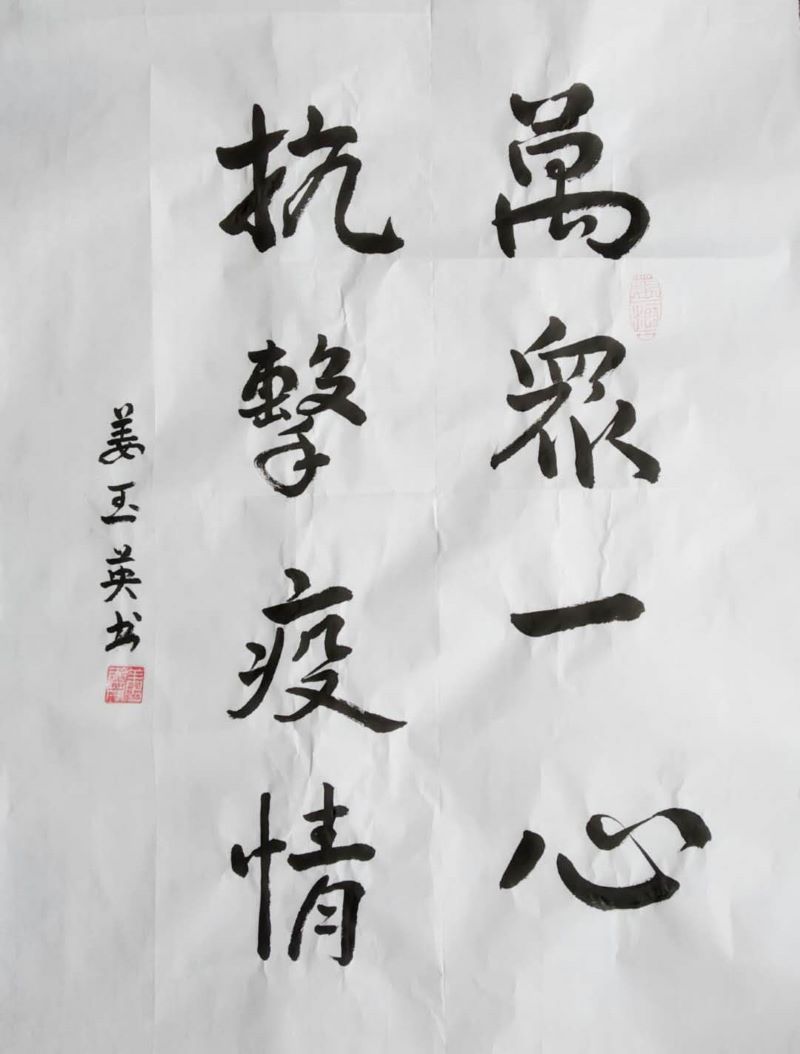 萬眾一心
抗擊疫情
姜玉英书